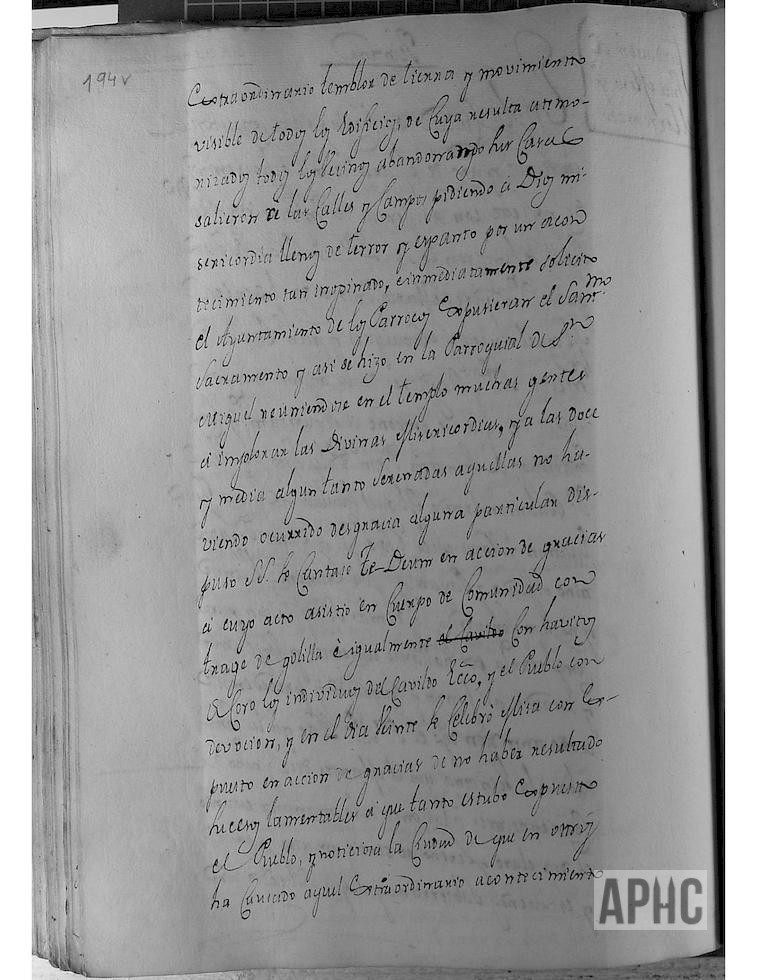 194v
Extraordinario temblor de tierra y movimiento
visible de todos los Edificios, de cuya resulta atemo-
rizados todos los vecinos abandonando sus Casas
salieron de las Calles y Campos pidiendo a Dios mi-
sericordia llenos de terror y espanto por un acon
tecimiento tan inopinado, e inmediatamente solicito
el Ayuntamiento de los Parrocos Expusieran el Santmo
Sacramento y asi se hizo en la Parroquial de Sn
Miguel reuniendose en el templo muchas gentes
a implorar las Divinas Misericordias, y a las doce
y media algun tanto serenadas aquellas no ha-
viendo ocurrido desgracia alguna particular dis-
puso SS. se Cantase Te Deum en accion de gracias
a cuyo acto asistio en Cuerpo de Comunidad con
trage de golilla è igualmente el Cavildo Con havitos
de Coro los individuos del Cavildo Ecco, y el Pueblo con
devocion, y en el dia veinte se Celebrò Misa con Ex-
puesto en accion de gracias de no haber resultado
sucesos lamentables a que tanto estubo Expuesto
el Pueblo, y noticiosa la Ciudad de que en otros
ha Causado aquel Extraordinario acontecimiento
APHC